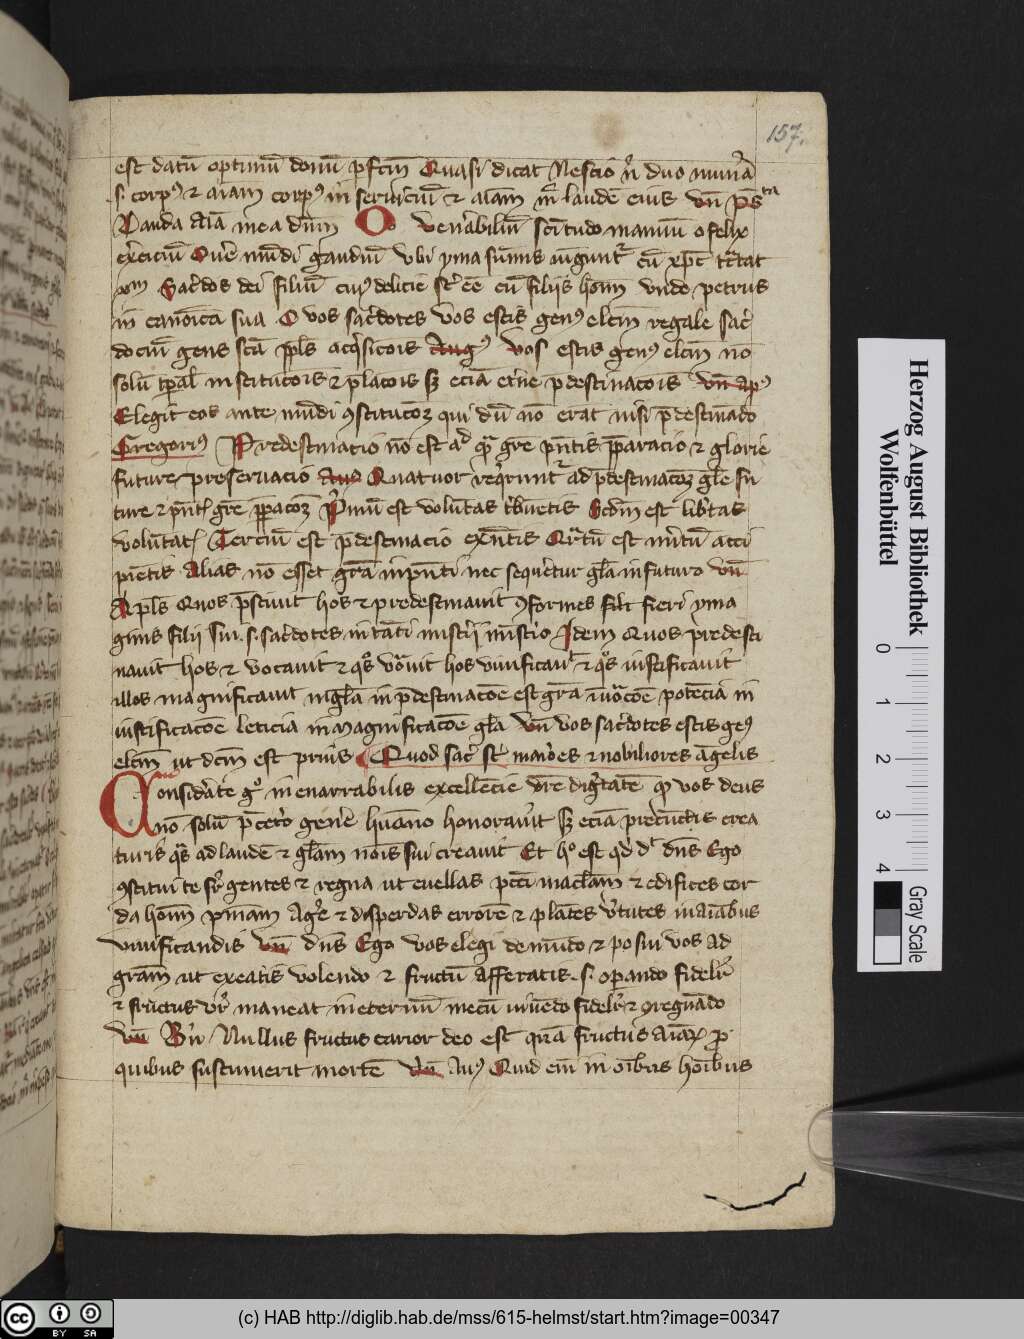 157.
est datū optimū donū ꝑfcm̄ Quasi dicat Nescio n̄ duo munera
s. corpꝰ ⁊ aīam corpꝰ in seruiciū ⁊ aīam in laudē eius vn̄ ps̄ta
Lauda aīa mea dn̄m O venerabiliū sc̄itudo manuū o felix
exerciciū O vere mūdi gaudiū vbi yma sūmis iūgunt᷑ cū xp̄c tc̄tat
xm̄ Sac̄dos dei filiū cuiꝰ delicie st̄ eē cū filiis hoīm vnde petrus
in canōica sua O vos sac̄dotes vos estis genꝰ elcm̄ regale sac̄
dociū gens sc̄a pp̄ls acq̇sicōis Augꝰ vos estis genꝰ elcm̄ nō
solū tꝑal᷑ institucōis ⁊ placōis sꝫ eciā et̄ne p̄destinacōis vn̄ apꝰ
Elegit eos ante mūdi ꝯstitucōꝫ qui dū nō erat nisi p̄destinādo
Gregoriꝰ Predestinatio nō est ad q̄ gr̄e pn̄tis p̄paracio ⁊ glorie
future preseruacio Au Quatuor req̇runt᷑ ad p̄destinacōꝫ gl̄e fu
ture ⁊ pn̄t gr̄e p̄pacōꝫ Pⁱmū est volūtas tⁱbuētis Scd̄m est lib̄tas
volūtat᷑ Terciū est p̄destinacio exn̄tis Qᵃrtū est m̄itū acci
piētis Alias nō esset gr̄a in pn̄ti nec sequeretur gl̄a in futuro vn̄
Apl̄s Quos p̄sciuit hos ⁊ predestinauit ꝯformes filt fieri yma
ginis filij sui .s. sac̄dotes in tāti mist̄ij mīst̄io Idem Quos predesti
nauit hos ⁊ vocauit ⁊ qͦs vōuit hos viuificauͭ ⁊ qͦs iustificauit
illos magnificauit in gl̄a in p̄destinacōe est gr̄a in vōcōe potēcia in
iustificacōe leticia in magnificacōe gl̄a vn̄ vos sac̄dotes estis geꝰ
elcm̄ ut dc̄m est prius Quod sac̄ st̄ maiores ⁊ nobiliores āgelis
Considerate gͦ inenarrabilis excellēcie vr̄e dignitatē qꝫ vos deus
nō solū p̄ cet̄o gen̄e hūano honorauit sꝫ eciā p̄ cūctis crea
turis qͣs ad laudē ⁊ gl̄am nōis sui creauit Et hͦ est qd̄ dt̄ dn̄s Ego
ꝯstitui te sr̄ gentes ⁊ regna ut euellas pcc̄i maclām ⁊ edifices cor
da hoīm Agere ⁊ disperdas errorē ⁊ plātes v̄tutes in aīabus
viuificandis vn̄ dn̄s Ego vos elegi de mūdo ⁊ posui vos ad
gram̄ ut exeatis volendo ⁊ fructū afferatis .s. operando fidelit̄
⁊ fructus vr̄ maneat in eternū mecū viuēdo fidelit̄ ⁊ ꝯregnādo
vn̄ Br̄n Nullus fructus carior deo est quā fructus aīaꝝ ꝓ
quibus sustinuerit mortē vn̄ Auꝰ Quid em̄ in oībus hoībus
Herzog August Bibliothek
Wolfenbüttel
0 1 2 3 4
Gray Scale
CC BY SA
(c) HAB http://diglib.hab.de/mss/615-helmst/start.htm?image=00347